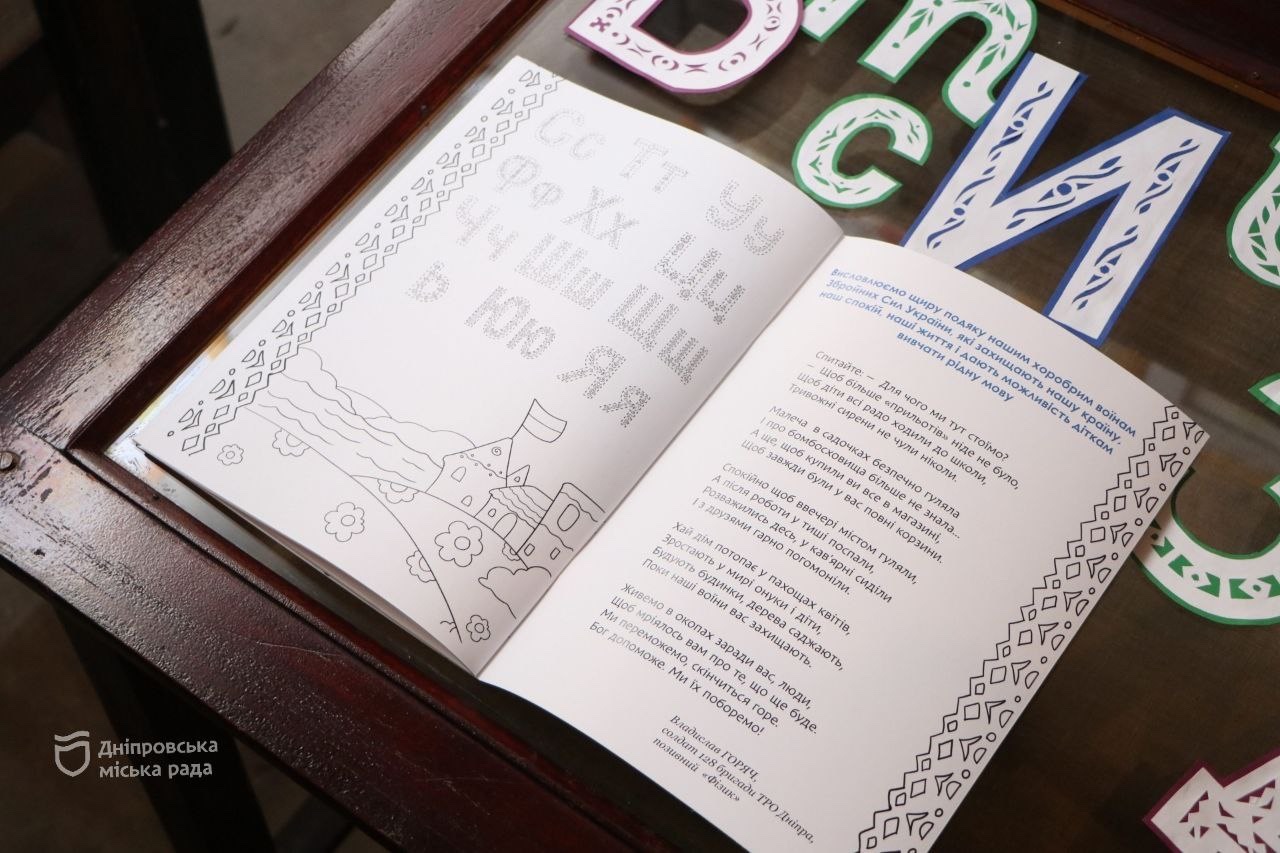 Сс Тт Уу
Фф Хх Цц
Чч Шш Щщ
Ь Юю Яя
Висловлюємо щиру подяку нашим хоробрим воїнам
Збройних Сил України, які захищають нашу країну,
наш спокій, наші життя і дають можливість діткам
вивчати рідну мову
Спитайте: – Для чого ми тут стоїмо?
– Щоб більше «прильотів» ніде не було,
Щоб діти всі радо ходили до школи,
Тривожні сирени не чули ніколи.
Малеча в садочках безпечно гуляла
І про бомбосховища більше не знала...
А ще, щоб купили ви все в магазині,
Щоб завжди були у вас повні корзини.
Спокійно щоб ввечері містом гуляли,
А після роботи у тиші поспали,
Розважились десь, у кав'ярні сиділи
І з друзями гарно погомоніли.
Хай дім потопає у пахощах квітів,
Зростають у мирі онуки і діти,
Будують будинки, дерева саджають,
Поки наші воїни вас захищають.
Живемо в окопах заради вас, люди,
Щоб мріялось вам про те, що ще буде.
Ми переможемо, скінчиться горе.
Бог допоможе. Ми їх поборемо!
Владислав ГОРЯЧ,
солдат 128 бригади ТРО Дніпра,
позивний «Фізик»
т
с
И
Дніпровська
міська рада